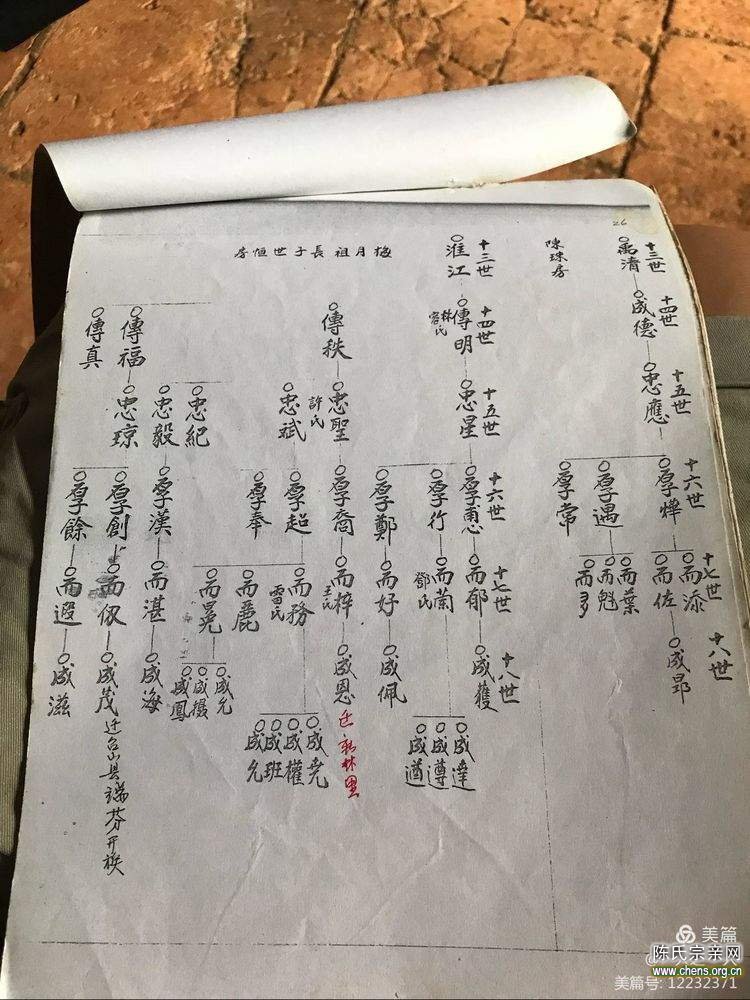 26
十三世
禹清
十四世
成德
十五世
忠應
十六世
厚燁
厚遇
厚常
十七世
而添
而佐
而葉
而魁
而多
十八世
成昂
陳珠房
梅月祖長子世恒房
十三世
淮江
十四世
傳明
林氏
容氏
傳秩
傳福
傳真
十五世
忠星
忠聖
許氏
忠斌
忠紀
忠毅
忠琼
十六世
厚憲
厚行
厚鄭
厚裔
厚超
厚奉
厚漢
厚創
厚餘
十七世
而郁
而蘭
鄧氏
而好
而梓
王氏
而務
雷氏
而麗
而晃
而湛
而仅
而遐
十八世
成獲
成達
成遵
成遒
成佩
成恩
迁新林里
成堯
成權
成班
成允
成允
成攝
成鳳
成海
成茂
迁台山县端芬开族
成滋
美篇
陈氏宗亲网
www.chens.org.cn
美篇号: 12232371